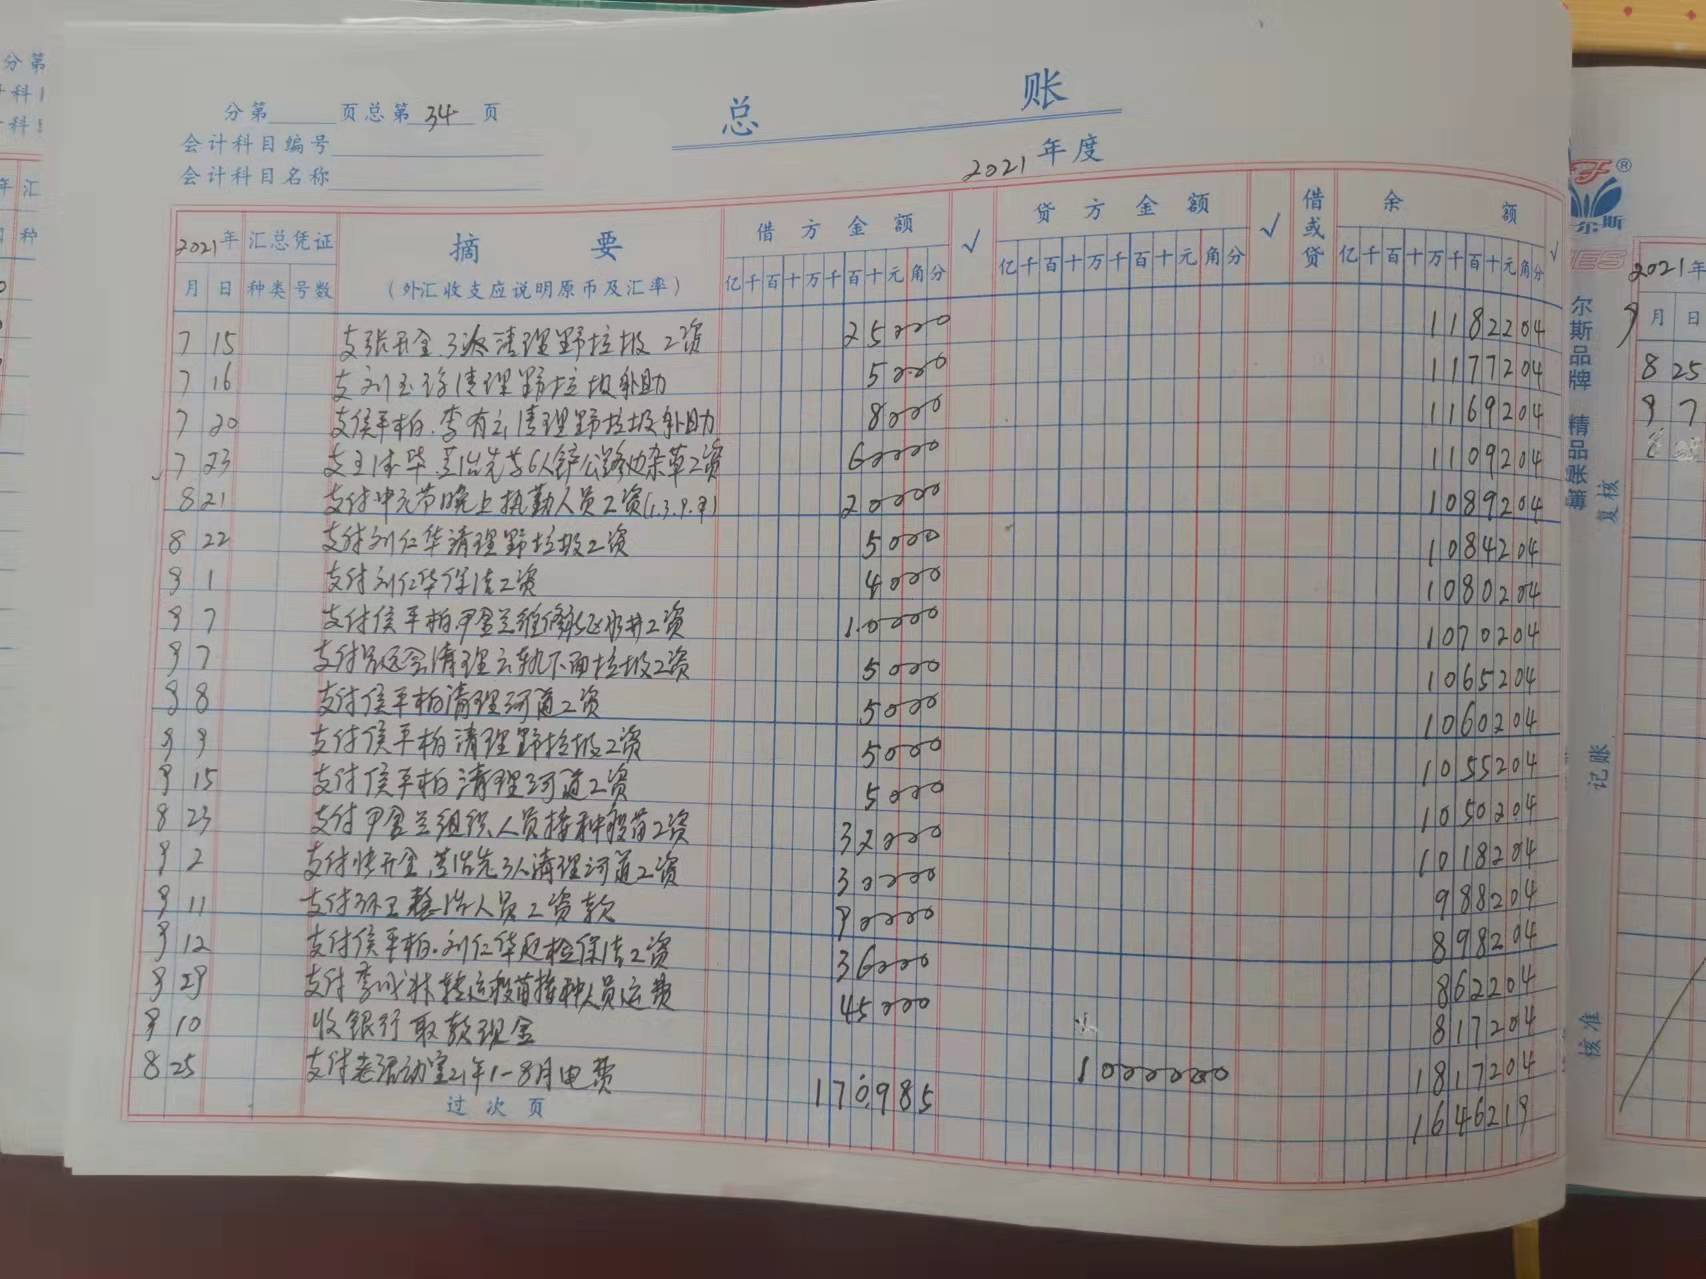 总 账
分第 页总第 34 页
会计科目编号
会计科目名称
2021 年度
2021年 汇总凭证 摘 要 借方金额 √ 贷方金额 √ 借或贷 余 额 √
月 日 种类 号数 (外汇收支应说明原币及汇率) 亿千百十万千百十元角分 亿千百十万千百十元角分 亿千百十万千百十元角分
7 15 清理野垃圾工资 25000 1182204
7 16 支刘玉珍清理野垃圾补助 5000 1177204
7 20 支侯平柏.李有云清理野垃圾补助 8000 1169204
7 23 6人铲公路边杂草工资 60000 1109204
8 21 支付中元节晚上执勤人员工资 20000 1089204
8 22 支付刘仁华清理野垃圾工资 5000 1084204
9 1 支付刘仁华保洁工资 4000 1080204
9 7 支付侯平柏.尹金兰维修 水井工资 10000 1070204
9 7 清理 下面垃圾工资 5000 1065204
9 8 支付侯平柏清理河道工资 5000 1060204
9 9 支付侯平柏清理野垃圾工资 5000 1055204
9 15 支付侯平柏清理河道工资 5000 1050204
8 23 支付尹金兰组织人员接种疫苗工资 32000 1018204
9 2 清理河道工资 30000 988204
9 11 支付环卫整治人员工资款 90000 898204
9 12 支付侯平柏.刘仁华 保洁工资 36000 862204
9 29 转运疫苗接种人员运费 45000 817204
9 10 收银行取款现金 1000000 1817204
8 25 支付老活动室21年1-8月电费 170985 1646219
过次页
尔斯
尔斯品牌 精品账簿
复核
记账
核准
2021年
月 日
8 25
9 7